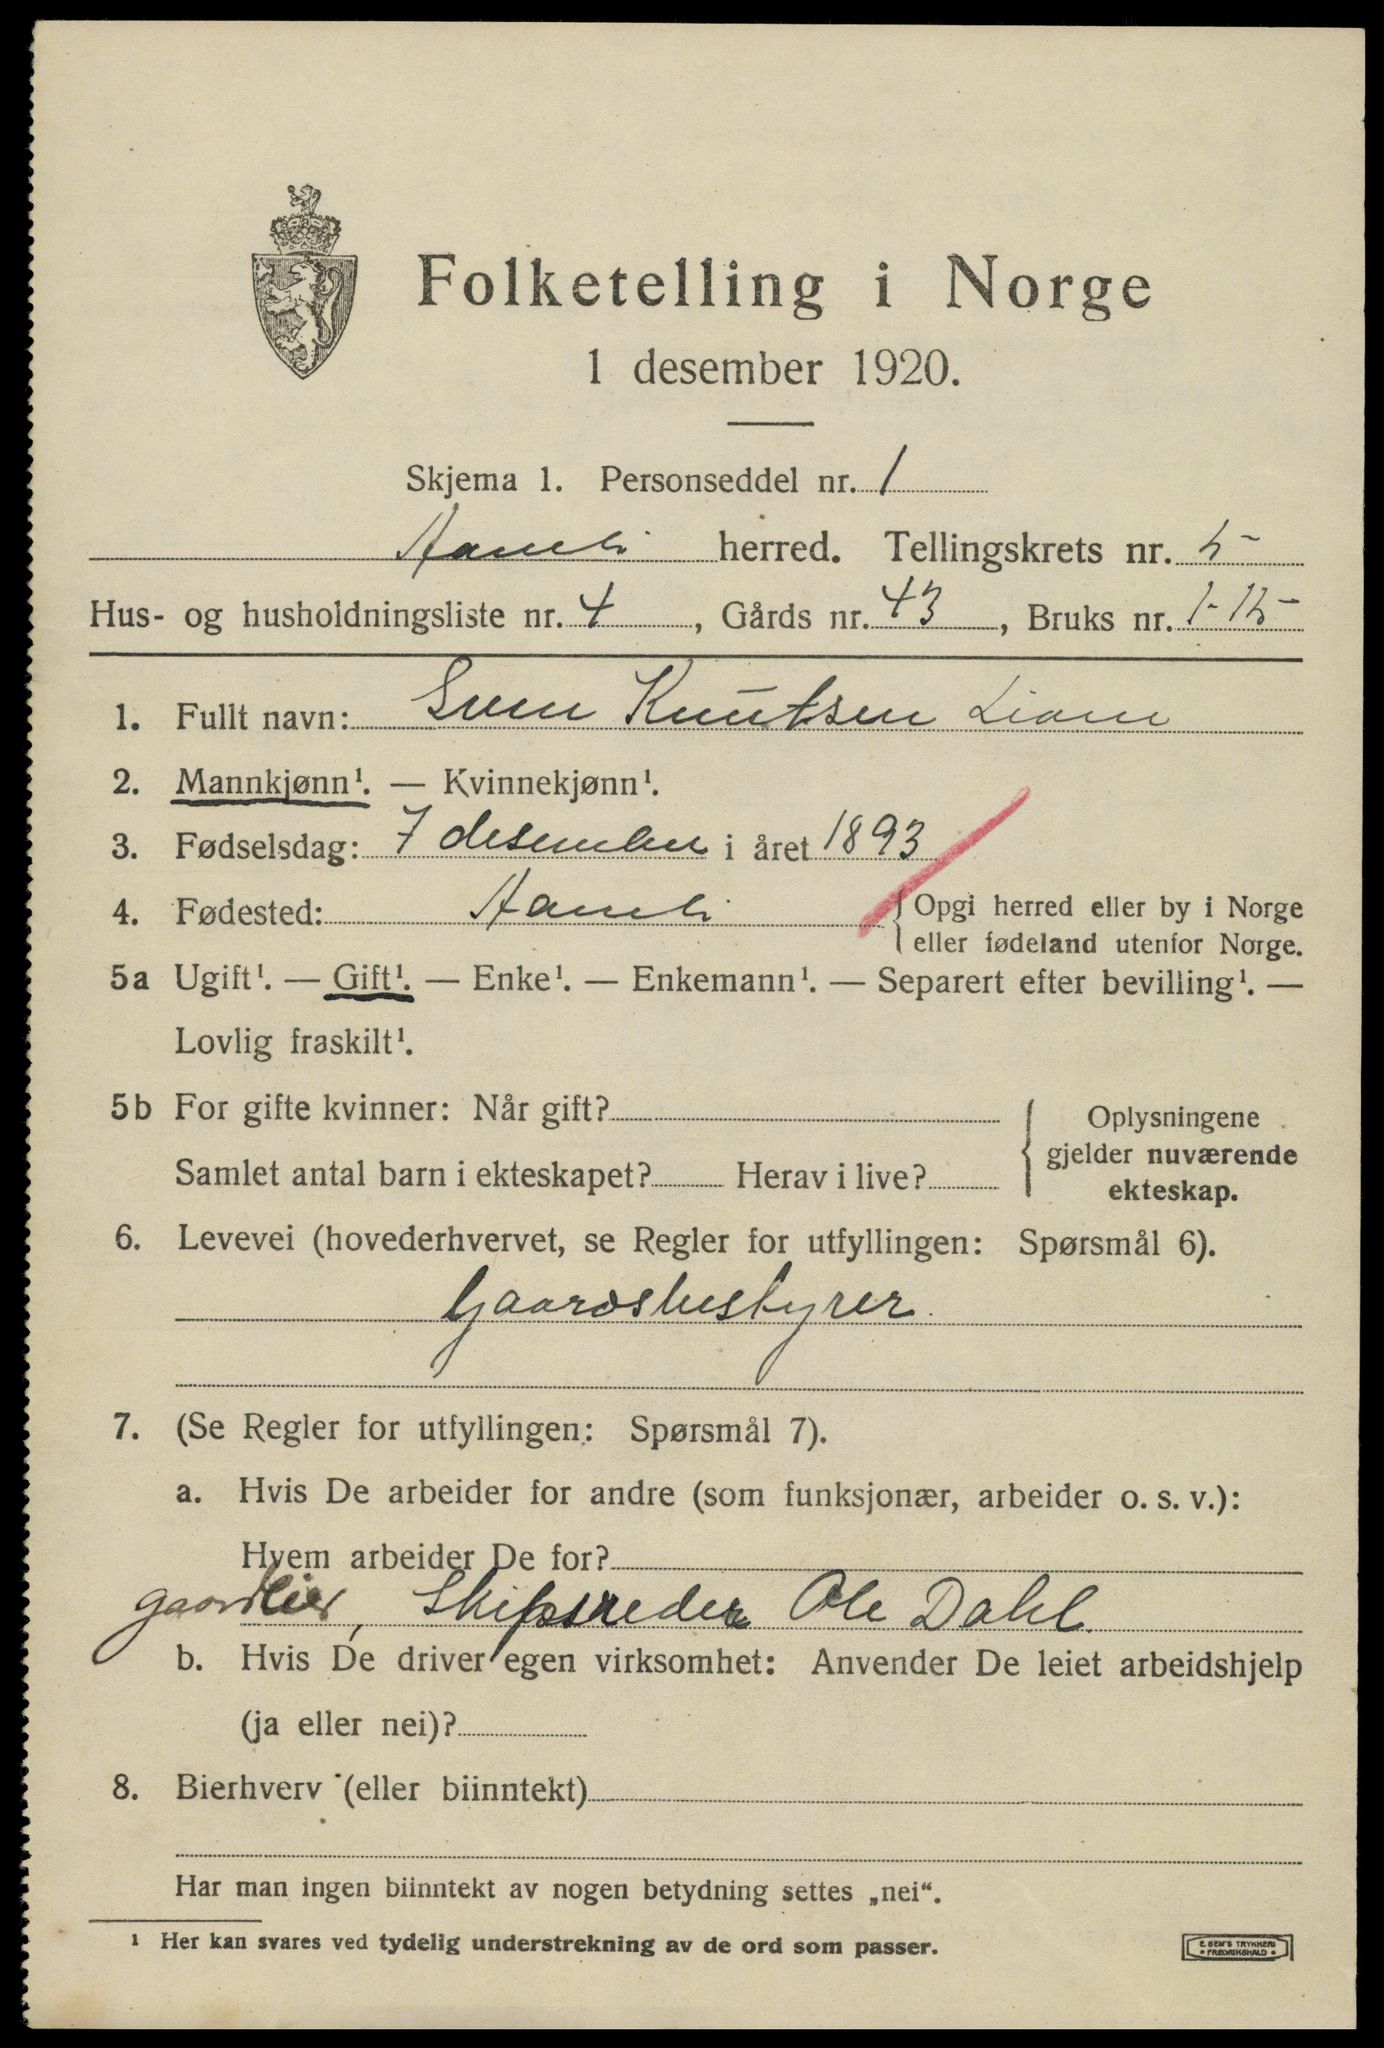 Folketelling i Norge
1 desember 1920.
Skjema 1. Personseddel nr. 1
Aamli herred. Tellingskrets nr. 5
Hus- og husholdningsliste nr. 4, Gårds nr. 43, Bruks nr. 1-15
1. Fullt navn: Sven Knutsen Liane
2. Mannkjønn¹. — Kvinnekjønn¹.
3. Fødselsdag: 7 desember i året 1893
4. Fødested: Aamli {Opgi herred eller by i Norge
eller fødeland utenfor Norge.
5a Ugift¹. — Gift¹. — Enke¹. — Enkemann¹. — Separert efter bevilling¹. —
Lovlig fraskilt¹.
5b For gifte kvinner: Når gift?
Samlet antal barn i ekteskapet? Herav i live?
Oplysningene
gjelder nuværende
ekteskap.
6. Levevei (hovederhvervet, se Regler for utfyllingen: Spørsmål 6).
Gaardsbestyrer.
7. (Se Regler for utfyllingen: Spørsmål 7).
a. Hvis De arbeider for andre (som funksjonær, arbeider o. s. v.):
Hvem arbeider De for?
gaardeier, Skipsreder Ole Dahl.
b. Hvis De driver egen virksomhet: Anvender De leiet arbeidshjelp
(ja eller nei)?
8. Bierhverv (eller biinntekt)
Har man ingen biinntekt av nogen betydning settes „nei“.
¹ Her kan svares ved tydelig understrekning av de ord som passer.
E. SEM'S TRYKKERI
• FREDRIKSHALD •